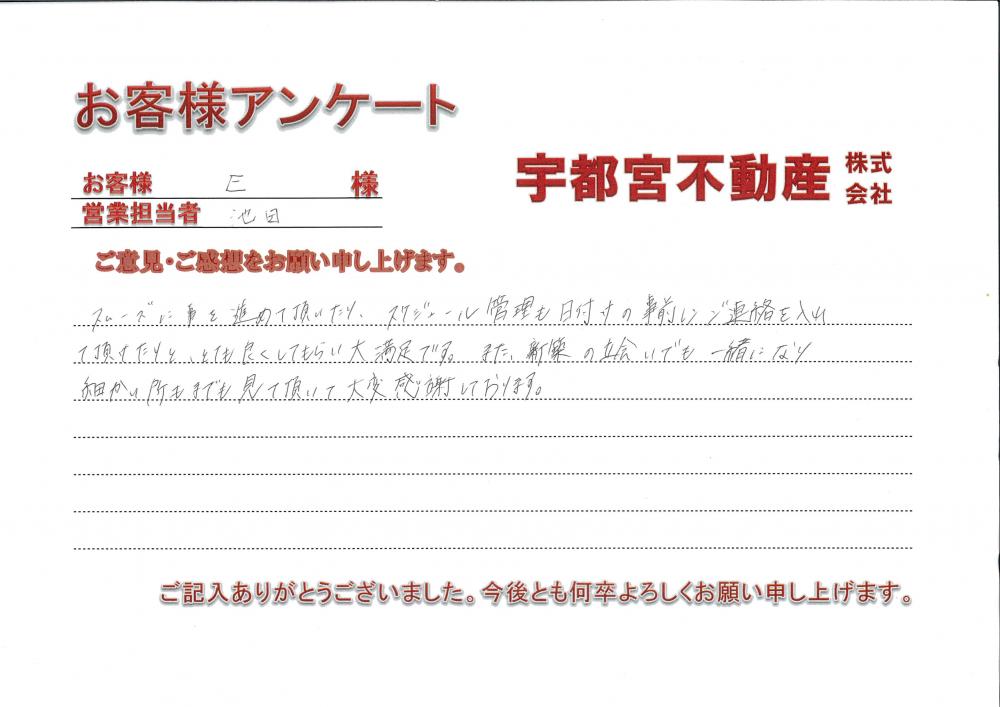 お客様アンケート
宇都宮不動産 株式会社
お客様 E 様
営業担当者 池田
ご意見・ご感想をお願い申し上げます。
スムーズに事を進めて頂いたり、スケジュール管理も日付すの事前にご連絡を入れ
て頂すたりと、とても良くしてもらい大満足です。また、新築の立会いでも一緒になり
細かい所もまでも見て頂いて大変感謝しております。
ご記入ありがとうございました。今後とも何卒よろしくお願い申し上げます。